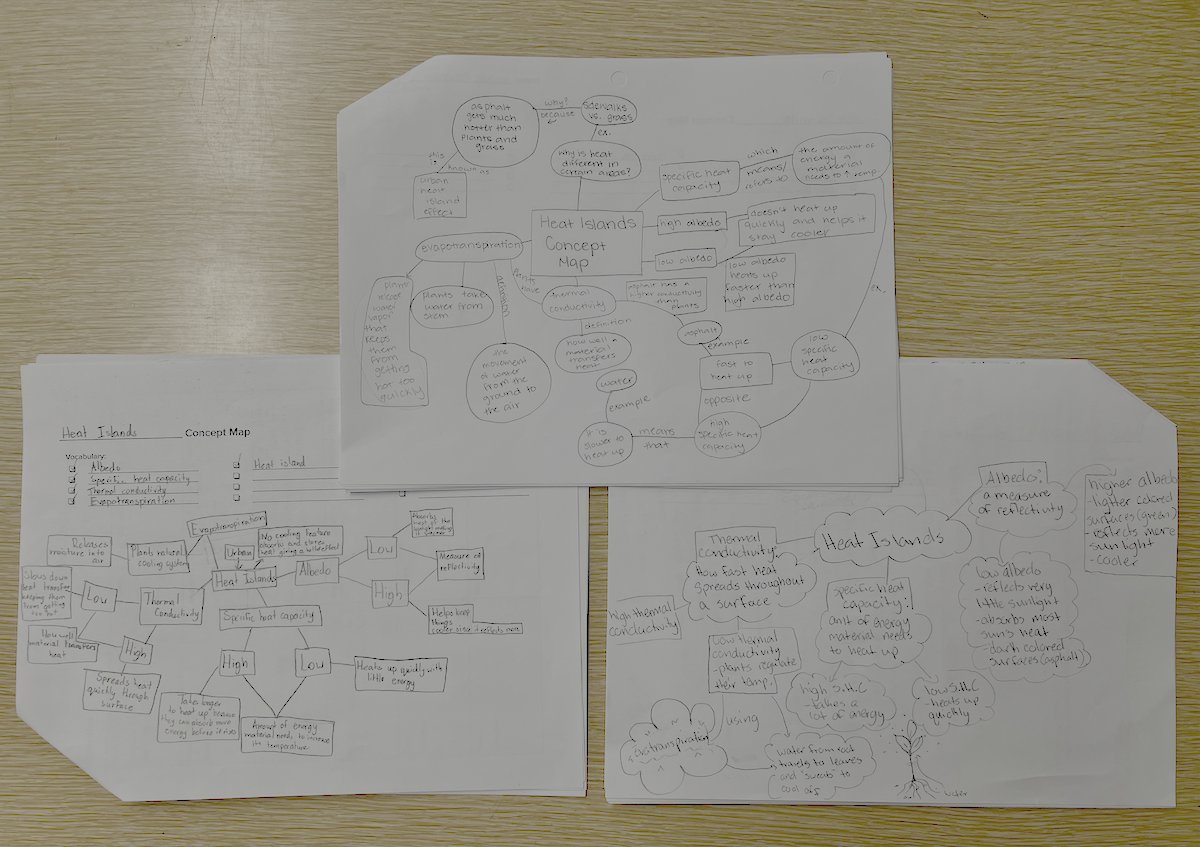 asphalt
gets much
hotter than
plants and
grass
why?
because
sidewalks
vs. grass
ex.
why is heat
different in
certain areas?
this
is
known as
urban
heat
island
effect
specific heat
capacity
which
means/
refers to
the amount of
energy a
material
needs to ↑ temp
Heat Islands
Concept
Map
high albedo
doesn't heat up
quickly and helps it
stay cooler
low albedo
low albedo
heats up
faster than
high albedo
evapotranspiration
plants
vapor
that
keeps
them
from
getting
hot too
quickly
plants take
water from
stem
definition
the
movement
of water
from the
ground to
the air
plants
have
thermal
conductivity
asphalt has a
higher conductivity
than
plants
definition
how well a
material
transfers
heat
asphalt
example
fast to
heat up
low
specific
heat
capacity
ex.
opposite
high
specific heat
capacity
means
that
it is
slower to
heat up
example
water
Heat Islands Concept Map
Vocabulary:
Albedo
heat capacity
Thermal conductivity
Evapotranspiration
Heat island
Evapotranspiration
Releases
moisture into
air
Plants natural
cooling system
Urban
No cooling feature
absorbs and stores
heat giving a
Heat Islands
Albedo
Low
High
Absorbs
most of the
sunlight making
it
Measure of
reflectivity
Helps keep
things
cooler since it reflects more
Slows down
heat transfer
keeping them
from getting
too hot
Low
Thermal
Conductivity
High
How well
material transfers
heat
Spreads heat
quickly through
surface
Specific heat capacity
High
Low
Heats up quickly with
little energy
Take longer
to heat up because
they can absorb more
energy before it rises
Amount of energy
material needs to increase
its temperature
Heat Islands
Albedo:
a measure
of reflectivity
higher albedo
- lighter colored
surfaces (green)
- reflects more
sunlight
- cooler
low albedo
- reflects very
little sunlight
- absorbs most
sun's heat
- dark colored
surfaces (asphalt)
Thermal
conductivity:
How fast heat
spreads throughout
a surface
high thermal
conductivity
low thermal
conductivity
- plants regulate
their temp.
using
water from root
travels to leaves
and "sweats" to
cool off
specific heat
capacity:
amt of energy
material needs
to heat up
high S.H.C
- takes a
lot of energy
low S.H.C
- heats up
quickly
water